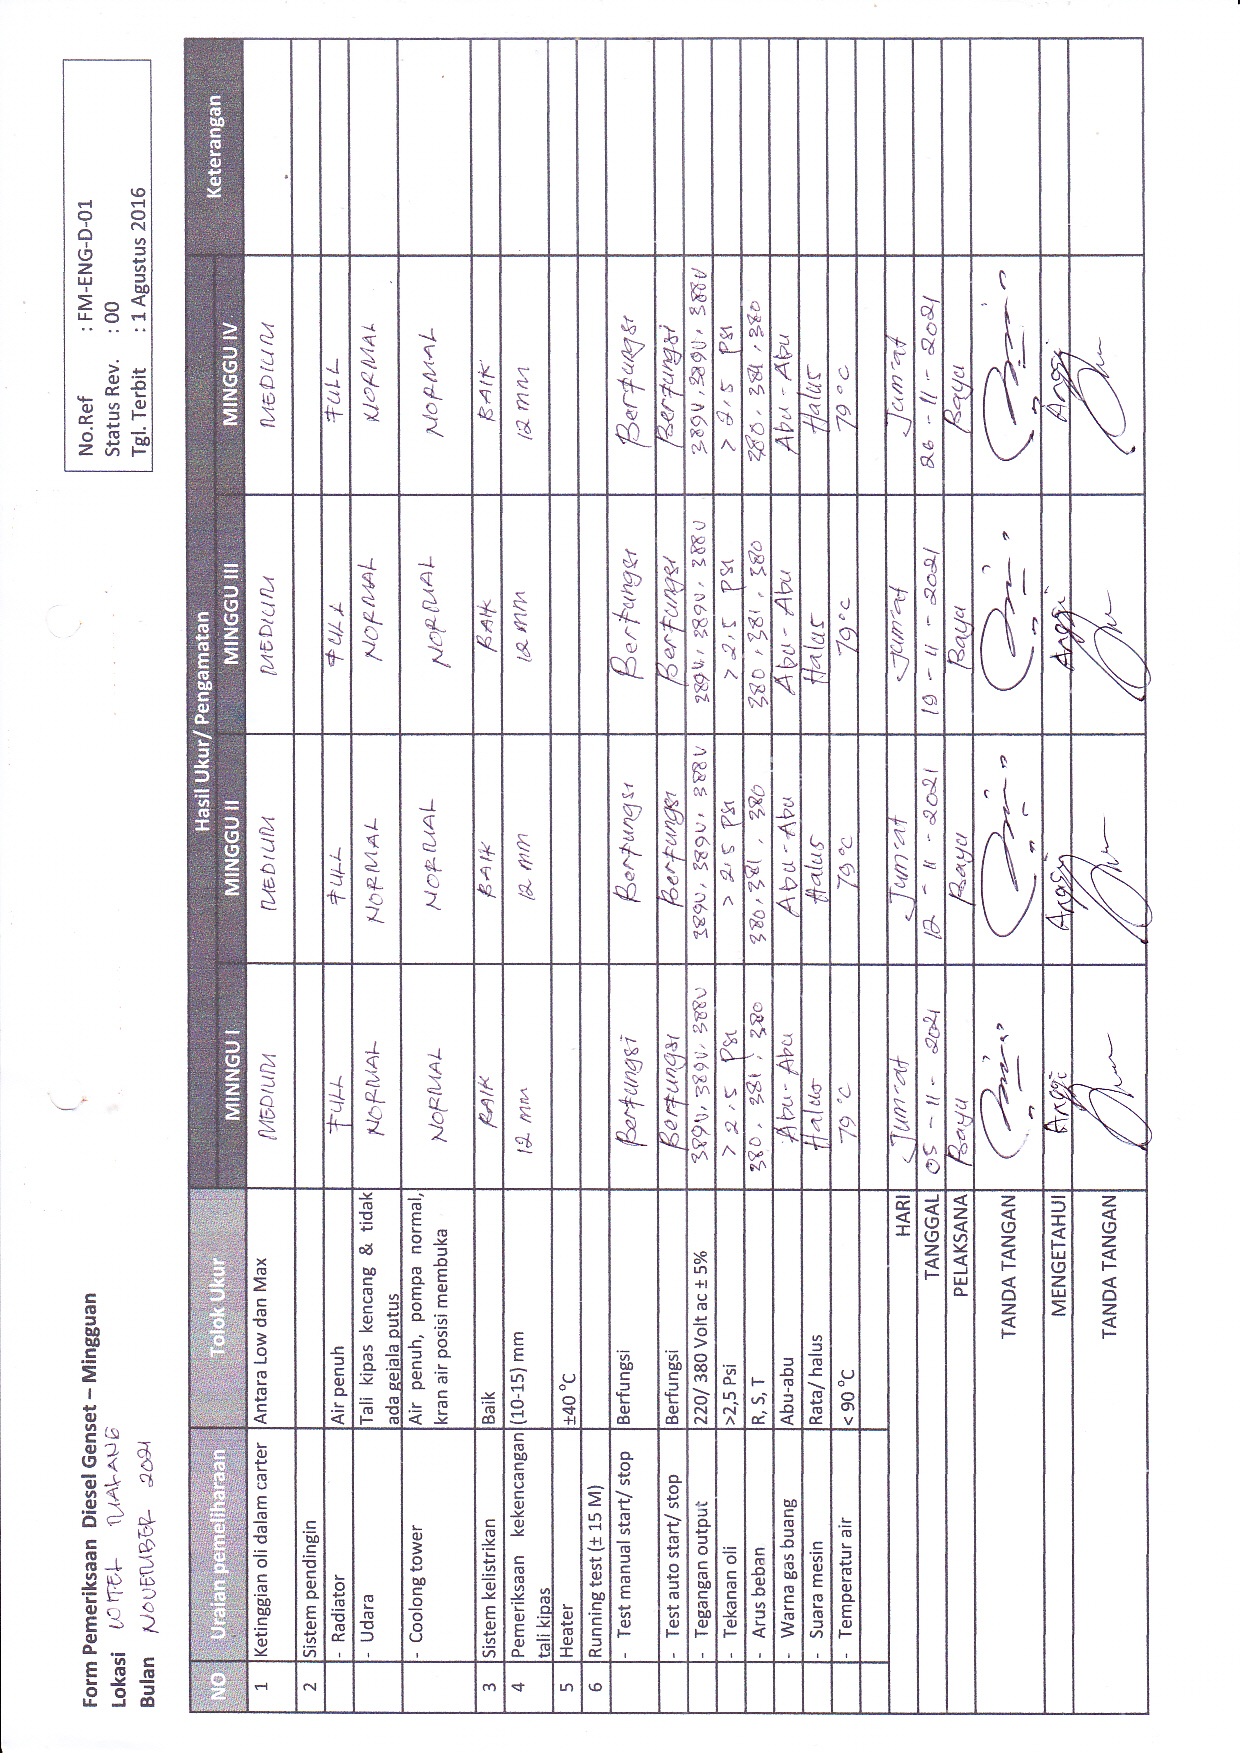 Form Pemeriksaan Diesel Genset – Mingguan
Lokasi WITEL MALANG
Bulan NOVEMBER 2021
No.Ref : FM-ENG-D-01
Status Rev. : 00
Tgl. Terbit : 1 Agustus 2016
NO Uraian pemeliharaan Tolok Ukur Hasil Ukur/ Pengamatan Keterangan
MINNGU I MINGGU II MINGGU III MINGGU IV
1 Ketinggian oli dalam carter Antara Low dan Max MEDIUM MEDIUM MEDIUM MEDIUM
2 Sistem pendingin
- Radiator Air penuh FULL FULL FULL FULL
- Udara Tali kipas kencang & tidak NORMAL NORMAL NORMAL NORMAL
ada gejala putus
- Coolong tower Air penuh, pompa normal, NORMAL NORMAL NORMAL NORMAL
kran air posisi membuka
3 Sistem kelistrikan Baik BAIK BAIK BAIK BAIK
4 Pemeriksaan kekencangan (10-15) mm 12 mm 12 mm 12 mm 12 mm
tali kipas
5 Heater ±40 °C
6 Running test (± 15 M)
- Test manual start/ stop Berfungsi Berfungsi Berfungsi Berfungsi Berfungsi
- Test auto start/ stop Berfungsi Berfungsi Berfungsi Berfungsi Berfungsi
- Tegangan output 220/ 380 Volt ac ± 5% 389V, 389V, 388V 389V, 389V, 388V 389V, 389V, 388V 389V, 389V, 388V
- Tekanan oli >2,5 Psi > 2,5 Psi > 2,5 Psi > 2,5 Psi > 2,5 Psi
- Arus beban R, S, T 380, 381, 380 380, 381, 380 380, 381, 380 380, 381, 380
- Warna gas buang Abu-abu Abu-Abu Abu-Abu Abu-Abu Abu-Abu
- Suara mesin Rata/ halus Halus Halus Halus Halus
- Temperatur air < 90 °C 79 °C 79 °C 79 °C 79 °C
HARI Jum'at Jum'at Jum'at Jum'at
TANGGAL 05 - 11 - 2021 12 - 11 - 2021 19 - 11 - 2021 26 - 11 - 2021
PELAKSANA Bayu Bayu Bayu Bayu
TANDA TANGAN
MENGETAHUI Anggi Anggi Anggi Anggi
TANDA TANGAN